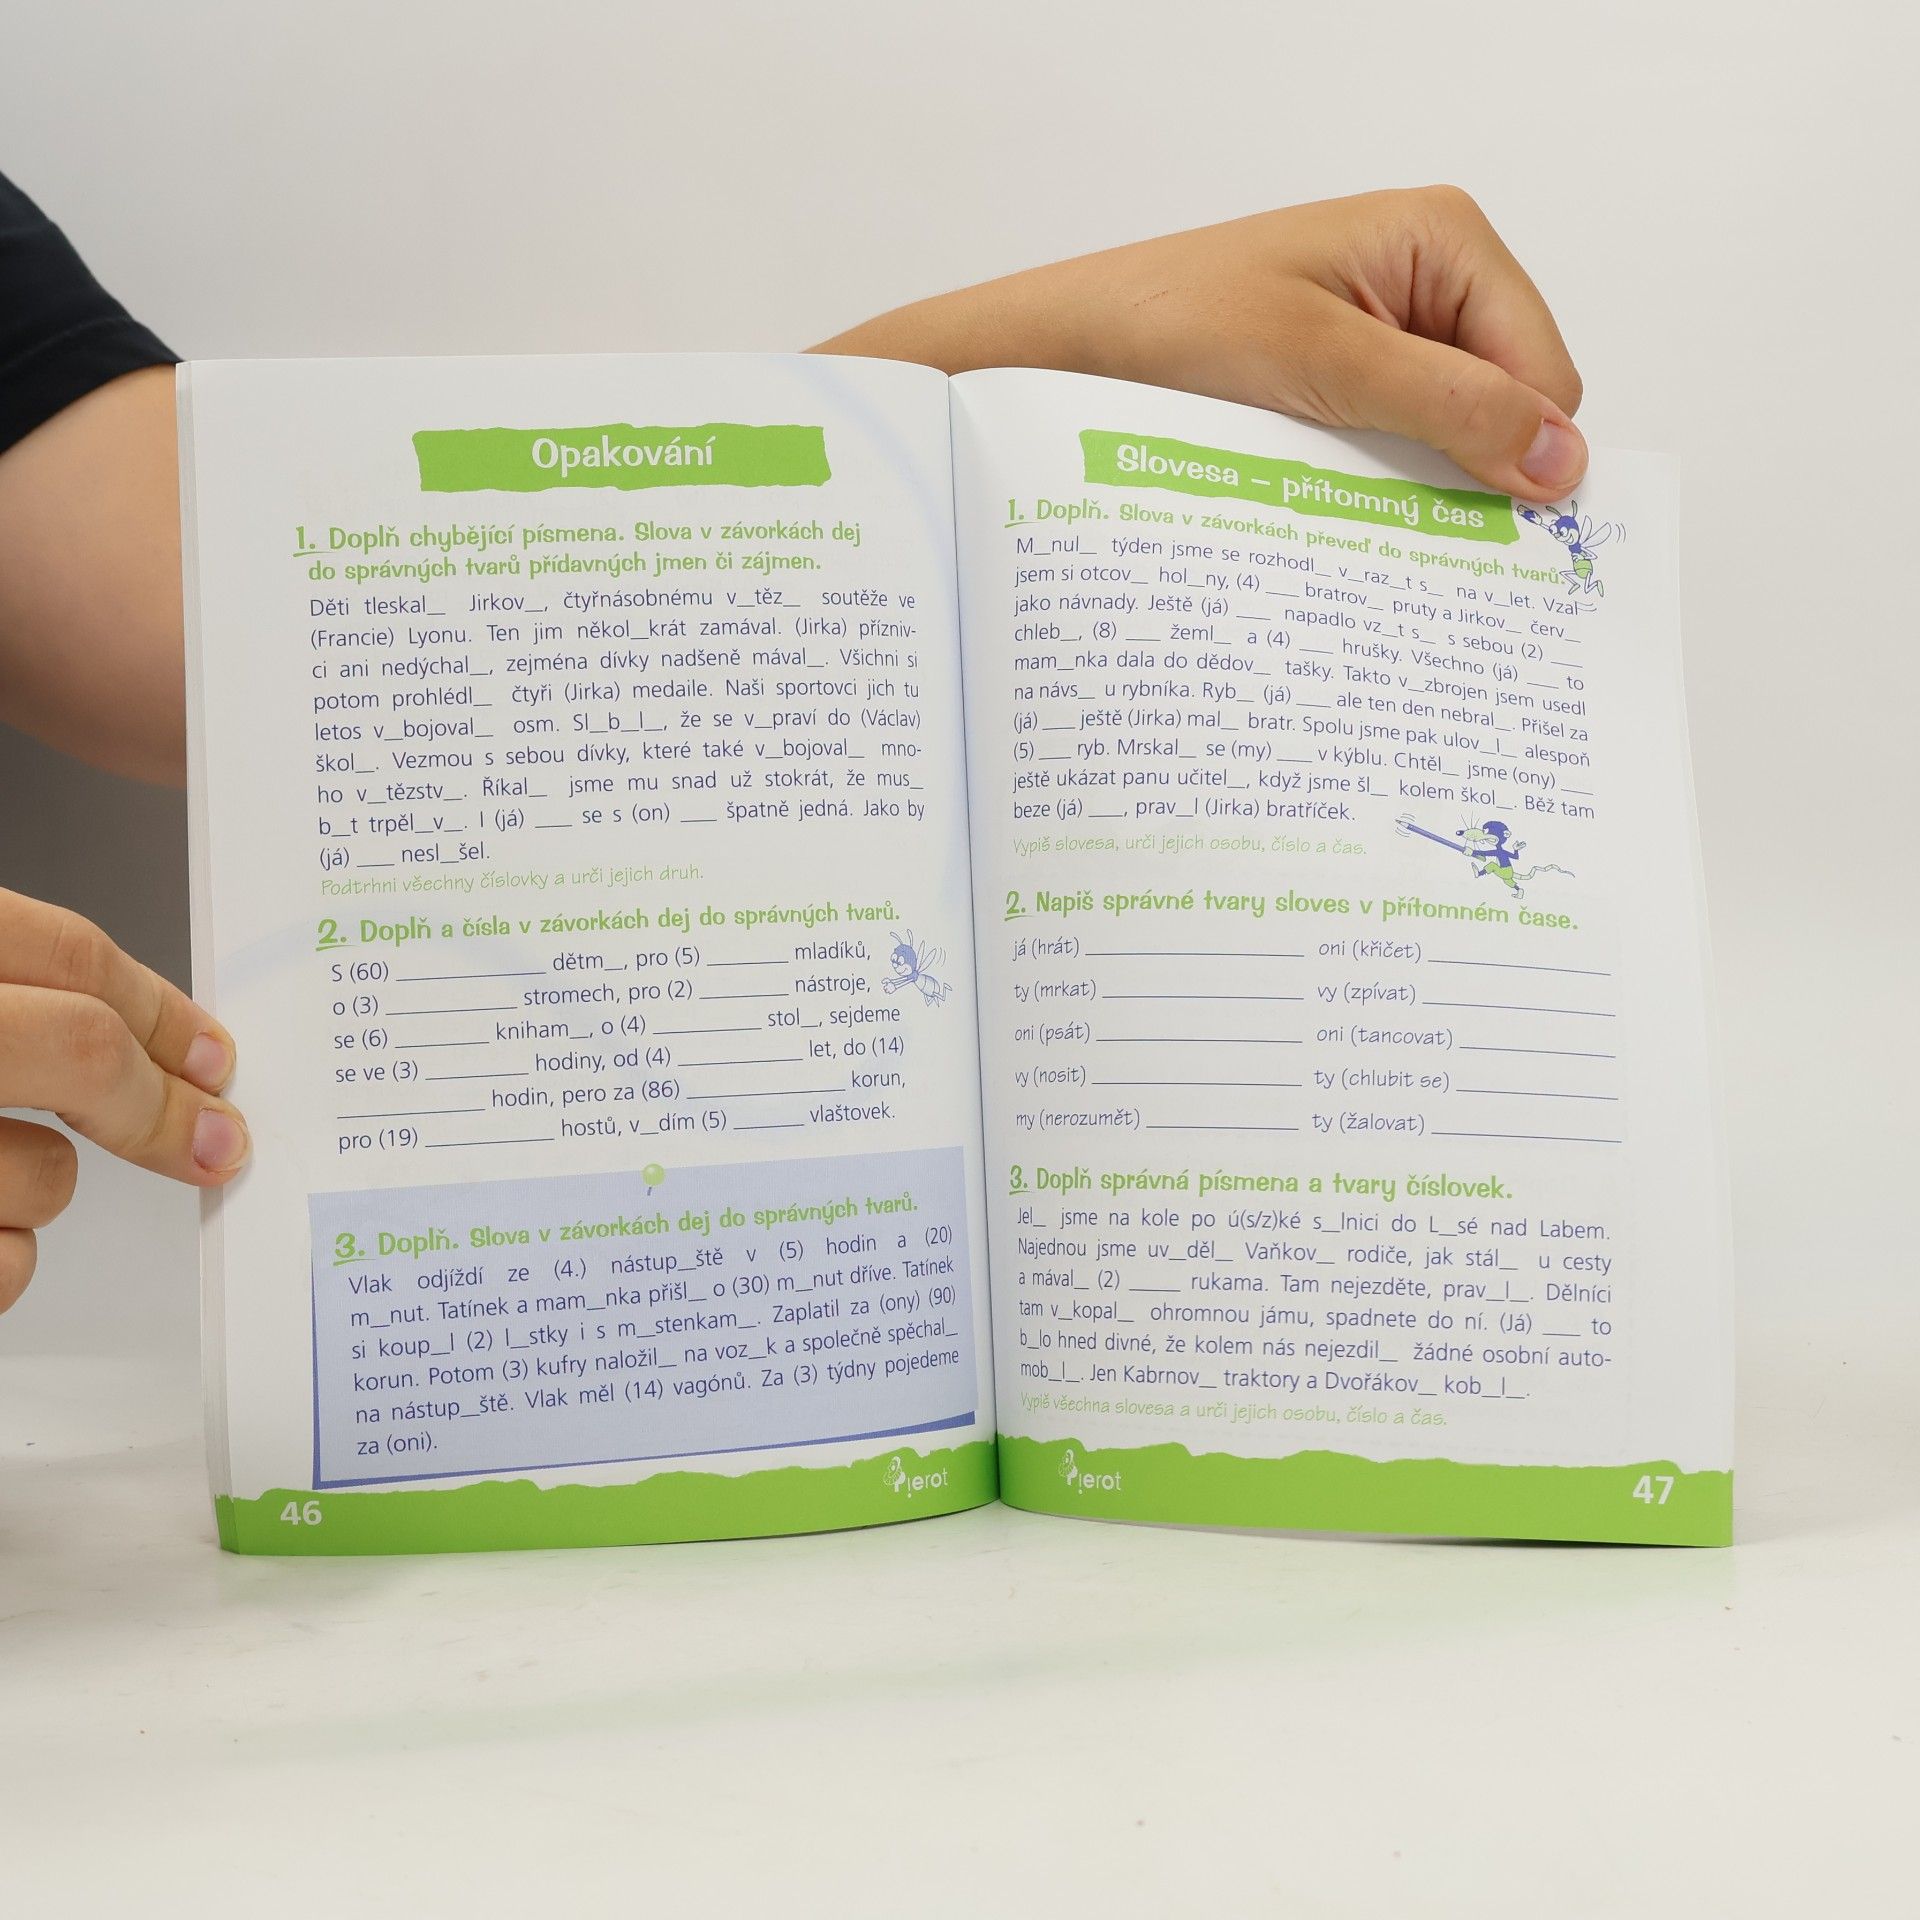 Opakování
1. Doplň chybějící písmena. Slova v závorkách dej
do správných tvarů přídavných jmen či zájmen.
Děti tleskal__ Jirkov__, čtyřnásobnému v__těz__ soutěže ve
(Francie) Lyonu. Ten jim někol__krát zamával. (Jirka) přízniv-
ci ani nedýchal__, zejména dívky nadšeně mával__. Všichni si
potom prohlédl__ čtyři (Jirka) medaile. Naši sportovci jich tu
letos v__bojoval__ osm. Sl__b__l__, že se v__praví do (Václav)
škol__. Vezmou s sebou dívky, které také v__bojoval__ mno-
ho v__tězstv__. Říkal__ jsme mu snad už stokrát, že mus__
b__t trpěl__v__. I (já) ___ se s (on) ___ špatně jedná. Jako by
(já) ___ nesl__šel.
Podtrhni všechny číslovky a urči jejich druh.
2. Doplň a čísla v závorkách dej do správných tvarů.
S (60) ____________ dětm__, pro (5) _______ mladíků,
o (3) ___________ stromech, pro (2) _______ nástroje,
se (6) ________ kniham__, o (4) _________ stol__, sejdeme
se ve (3) ________ hodiny, od (4) __________ let, do (14)
____________ hodin, pero za (86) _____________ korun,
pro (19) __________ hostů, v__dím (5) ______ vlaštovek.
3. Doplň. Slova v závorkách dej do správných tvarů.
Vlak odjíždí ze (4.) nástup__ště v (5) hodin a (20)
m__nut. Tatínek a mam__nka přišl__ o (30) m__nut dříve. Tatínek
si koup__l (2) l__stky i s m__stenkam__. Zaplatil za (ony) (90)
korun. Potom (3) kufry naložil__ na voz__k a společně spěchal__
na nástup__ště. Vlak měl (14) vagónů. Za (3) týdny pojedeme
za (oni).
46
Pierot
Slovesa – přítomný čas
1. Doplň. Slova v závorkách převeď do správných tvarů.
M__nul__ týden jsme se rozhodl__ v__raz__t s__ na v__let. Vzal
jsem si otcov__ hol__ny, (4) ___ bratrov__ pruty a Jirkov__ červ__
jako návnady. Ještě (já) ___ napadlo vz__t s__ s sebou (2) ___
chleb__, (8) ___ žeml__ a (4) ___ hrušky. Všechno (já) ___ to
mam__nka dala do dědov__ tašky. Takto v__zbrojen jsem usedl
na návs__ u rybníka. Ryb__ (já) ___ ale ten den nebral__. Přišel za
(já) ___ ještě (Jirka) mal__ bratr. Spolu jsme pak ulov__l__ alespoň
(5) ___ ryb. Mrskal__ se (my) ___ v kýblu. Chtěl__ jsme (ony) ___
ještě ukázat panu učitel__, když jsme šl__ kolem škol__. Běž tam
beze (já) ___, prav__l (Jirka) bratříček.
Vypiš slovesa, urči jejich osobu, číslo a čas.
2. Napiš správné tvary sloves v přítomném čase.
já (hrát) __________________ oni (křičet) _______________
ty (mrkat) _________________ vy (zpívat) ________________
oni (psát) _________________ oni (tancovat) _____________
vy (nosit) _________________ ty (chlubit se) _____________
my (nerozumět) _____________ ty (žalovat) _______________
3. Doplň správná písmena a tvary číslovek.
Jel__ jsme na kole po ú(s/z)ké s__lnici do L__sé nad Labem.
Najednou jsme uv__děl__ Vaňkov__ rodiče, jak stál__ u cesty
a mával__ (2) _____ rukama. Tam nejezděte, prav__l__. Dělníci
tam v__kopal__ ohromnou jámu, spadnete do ní. (Já) ___ to
b__lo hned divné, že kolem nás nejezdil__ žádné osobní auto-
mob__l__. Jen Kabrnov__ traktory a Dvořákov__ kob__l__.
Vypiš všechna slovesa a urči jejich osobu, číslo a čas.
Pierot
47